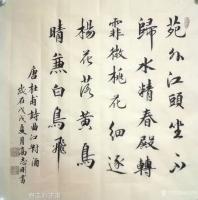 苑外江頭坐不
歸水精春殿轉
霏微桃花細逐
楊花落黃鳥
時兼白鳥飛
唐杜甫詩曲江對酒
歲在戊戌夏月高志刚書